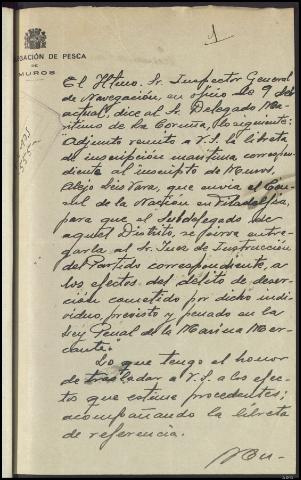 1
DELEGACIÓN DE PESCA
DE
MUROS
El Iltmo. Sr. Inspector General
de Navegación, en oficio de 9 del
actual, dice al Sr. Delegado Ma-
rítimo de La Coruña, lo siguiente:
Adjunto remito a V.S. la libreta
de inscripción marítima correspon-
diente al inscripto de Muros,
Alejo que envía el Con-
sul de la Nación en Filadelfia,
para que el Subdelegado de
aquel Distrito, se sirva entre-
garla al Sr. Juez de Instrucción
del Partido correspondiente, a
los efectos del delito de deser-
ción cometido por dicho indi-
viduo, previsto y penado en la
Ley Penal de la Marina Mer-
cante."
Lo que tengo el honor
de trasladar a V.S. a los efec-
tos que estime procedentes;
acompañando la libreta
de referencia.
Mu-